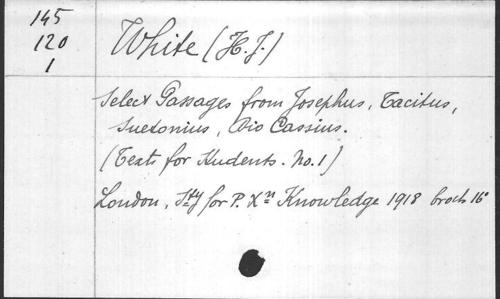 145
120
1
White (H. J.)
Select Passages from Josephus, Tacitus,
Suetonius, Dio Cassius.
(Texts for Students. No. 1)
London, Sty for P. Xn Knowledge 1918 broch 16°